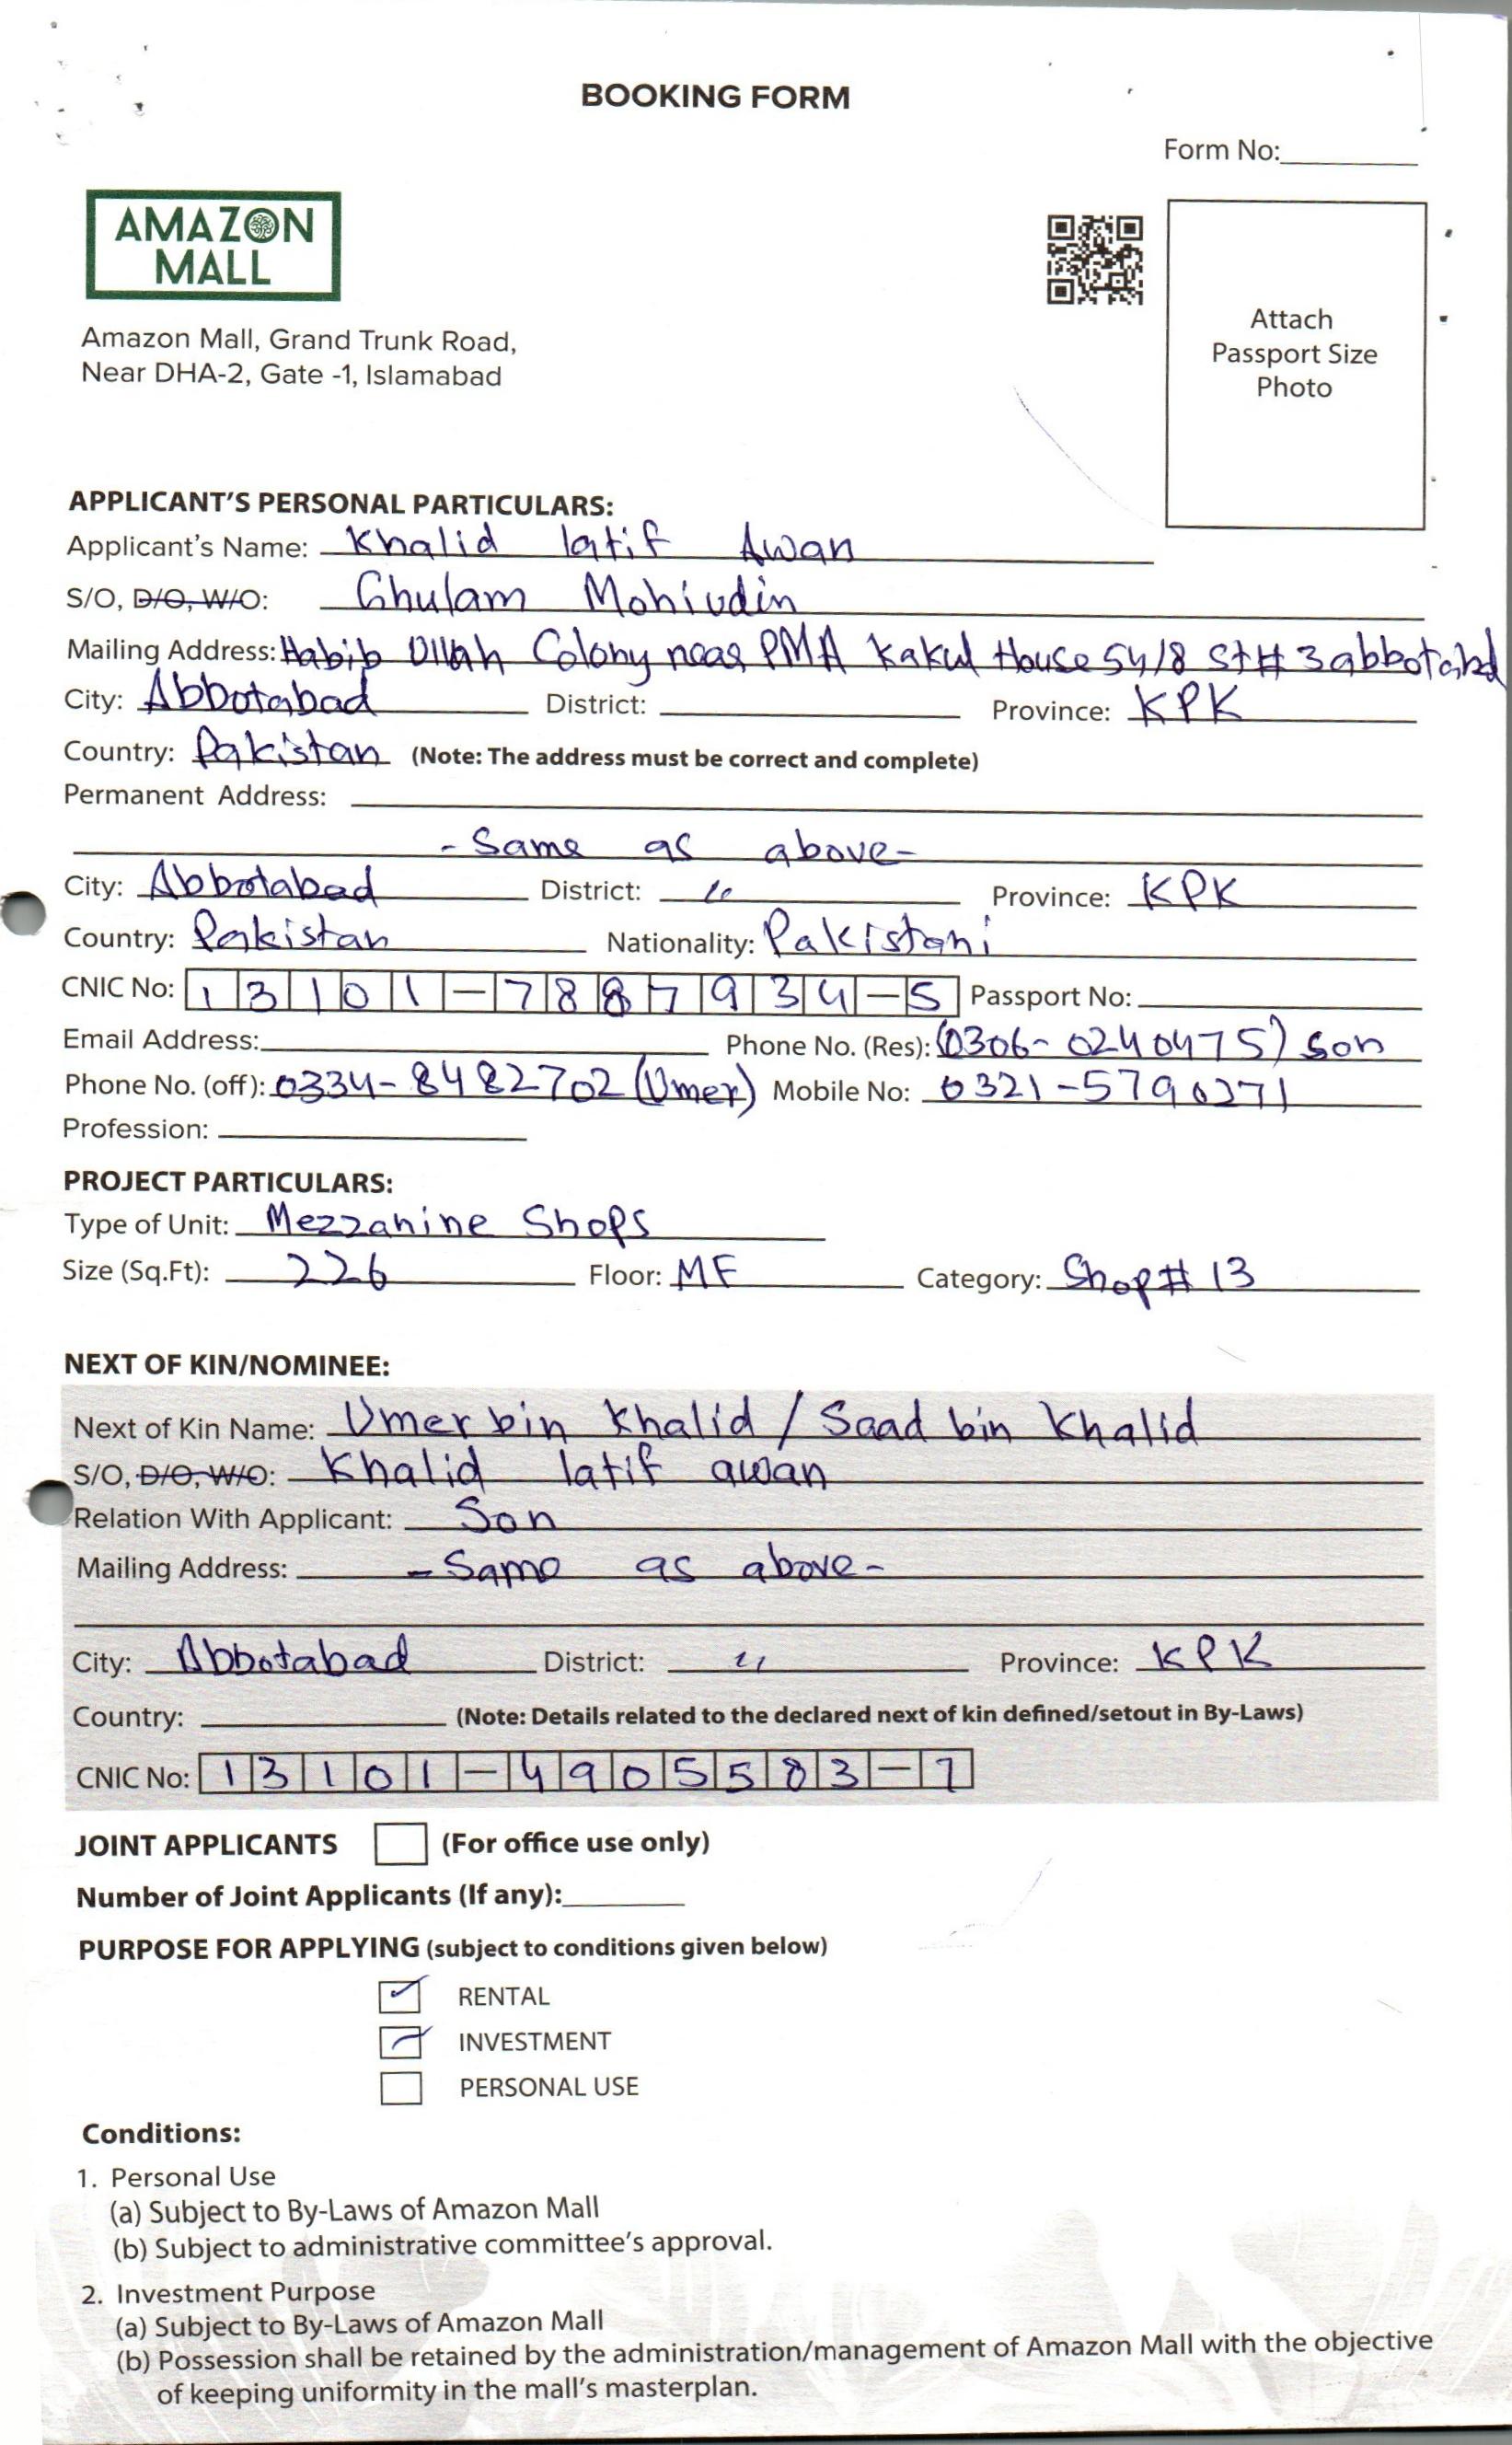 BOOKING FORM
Form No:
AMAZON
MALL
Attach
Passport Size
Photo
Amazon Mall, Grand Trunk Road,
Near DHA-2, Gate -1, Islamabad
APPLICANT'S PERSONAL PARTICULARS:
Applicant's Name: Khalid latif Awan
S/O, D/O, W/O: Ghulam Mohiudin
Mailing Address: Habib Ullah Colony near PMA Kakul House 54/8 St# 3 abbotabd
City: Abbotabad District: Province: KPK
Country: Pakistan (Note: The address must be correct and complete)
Permanent Address:
- Same as above -
City: Abbotabad District: " Province: KPK
Country: Pakistan Nationality: Pakistani
CNIC No: 13101-7887934-5 Passport No:
Email Address: Phone No. (Res): (0306-0240475) son
Phone No. (off): 0334-8482702 (Umer) Mobile No: 0321-5790271
Profession:
PROJECT PARTICULARS:
Type of Unit: Mezzanine Shops
Size (Sq.Ft): 226 Floor: MF Category: Shop# 13
NEXT OF KIN/NOMINEE:
Next of Kin Name: Umer bin Khalid / Saad bin Khalid
S/O, D/O, W/O: Khalid latif awan
Relation With Applicant: Son
Mailing Address: - Same as above -
City: Abbotabad District: " Province: KPK
Country: (Note: Details related to the declared next of kin defined/setout in By-Laws)
CNIC No: 13101-4905583-7
JOINT APPLICANTS (For office use only)
Number of Joint Applicants (If any):
PURPOSE FOR APPLYING (subject to conditions given below)
RENTAL
INVESTMENT
PERSONAL USE
Conditions:
1. Personal Use
(a) Subject to By-Laws of Amazon Mall
(b) Subject to administrative committee's approval.
2. Investment Purpose
(a) Subject to By-Laws of Amazon Mall
(b) Possession shall be retained by the administration/management of Amazon Mall with the objective
of keeping uniformity in the mall's masterplan.